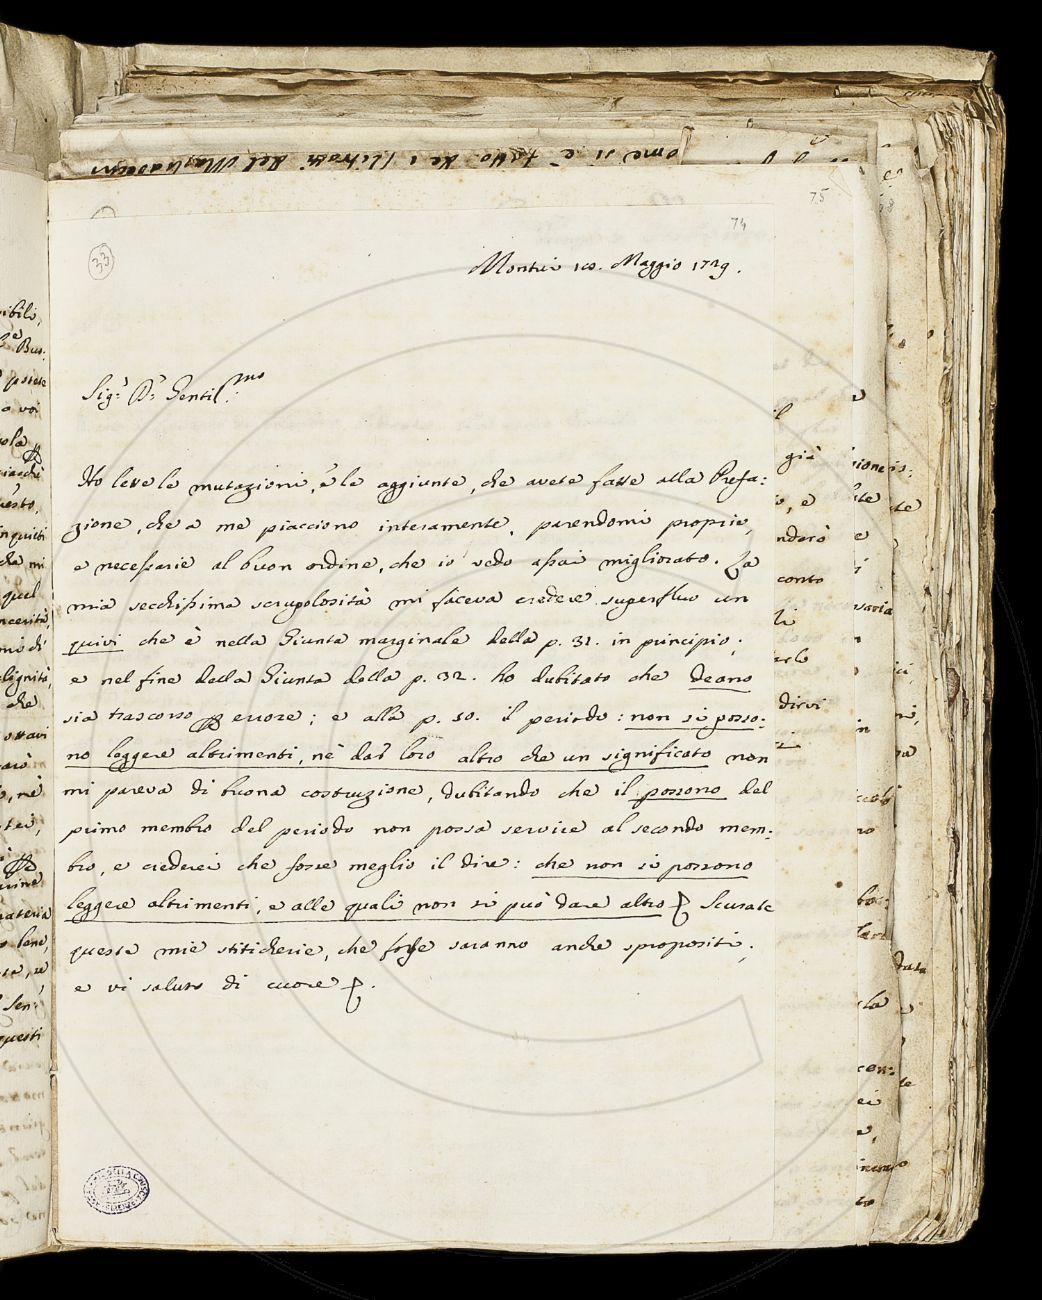 75
74
33
Montui 10. Maggio 1729.
Sig.r D.r Gentil.mo
Ho lette le mutazioni, e le aggiunte, che avete fatte alla Prefa:
zione, che a me piacciono interamente, parendomi proprie,
e necessarie al buon ordine, che io vedo assai migliorato. La
mia secchissima scrupolosità mi faceva credere superfluo un
quivi che è nella Giunta marginale della p. 31. in principio;
e nel fine della Giunta della p. 32. ho dubitato che deano
sia trascorso per errore; e alla p. 50. il periodo: non si posso:
no leggere altrimenti, nè dar loro altro che un significato non
mi pareva di buona costruzione, dubitando che il possono del
primo membro del periodo non possa servire al secondo mem:
bro, e crederei che fosse meglio il dire: che non si possono
leggere altrimenti, e alle quali non si può dare altro Scusate
queste mie stiticherie, che forse saranno anche spropositi;
e vi saluto di cuore